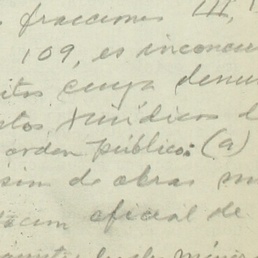 fracciones III,
109, es inconcu
itos cuya denun
ctos jurídicos d
orden público: (a)
sión de obras m
oficial de